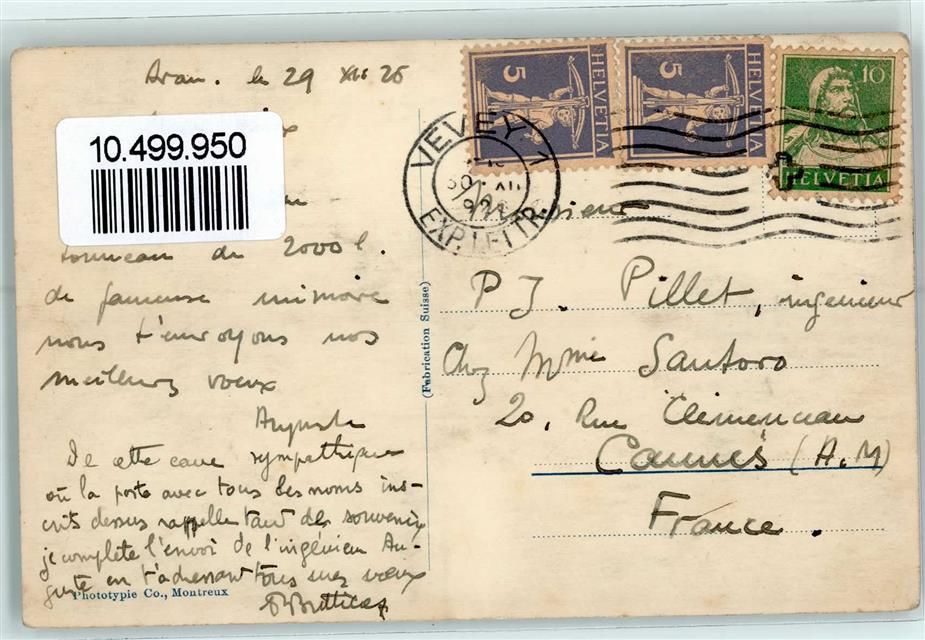 le 29 XII 26
10.499.950
tonneau de 2000 l.
de fameuse mémoire
nous t'envoyons nos
meilleurs voeux
Auguste
De cette cave sympathique
où la porte avec tous les noms ins-
crits dessus rappelle tant de souvenirs
je complète l'envoi de l'ingénieur Au-
guste en t'adressant tous mes voeux
Phototypie Co., Montreux
(Fabrication Suisse)
5 HELVETIA
5 HELVETIA
10 HELVETIA
VEVEY 1
EXP. LETTR.
Monsieur
P J. Pillet, ingenieur
Chez Mme Santoro
20, Rue Clemenceau
Cannes (A. M)
France.